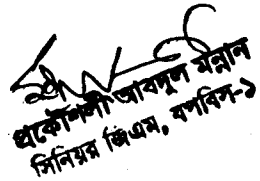 প্রকৌশলী আবদুল মন্নান
সিনিয়র জিএম, বপবিস-১